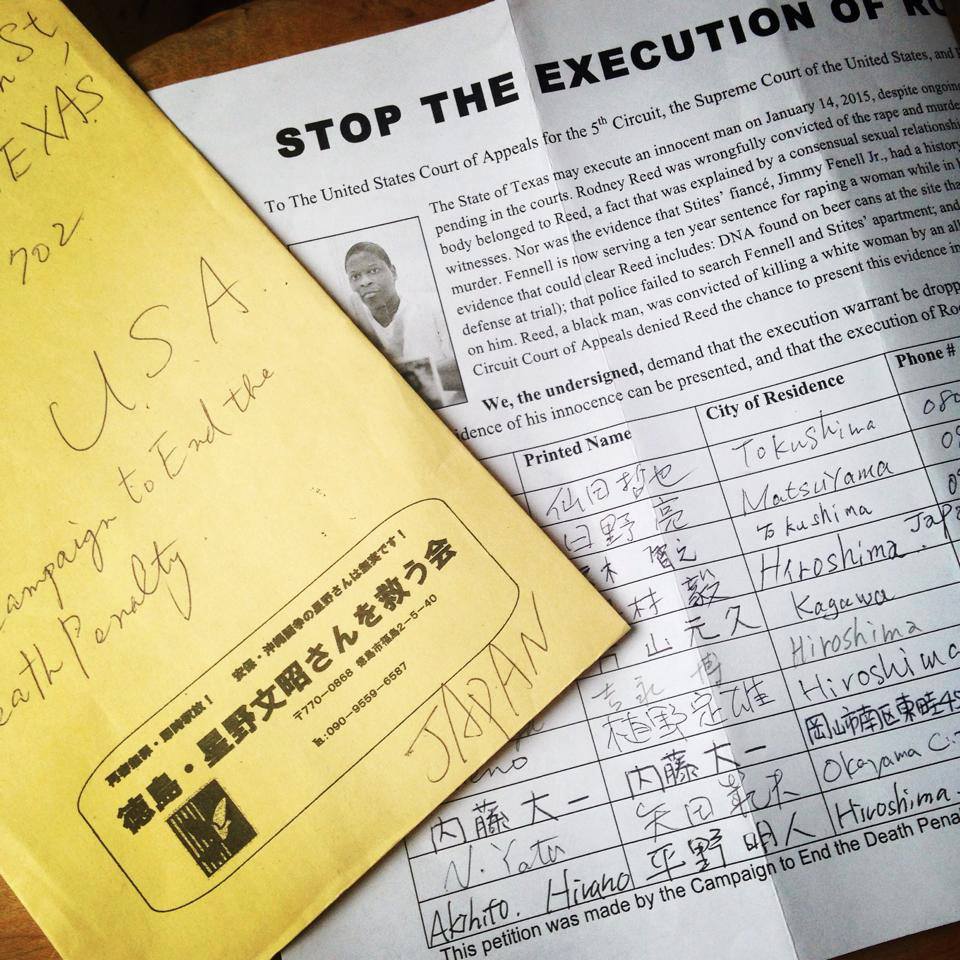 St,
TEXAS
702
U.S.A.
Campaign to End the
Death Penalty.
再審無罪・即時釈放! 安保・沖縄闘争の星野さんは無実です!
徳島・星野文昭さんを救う会
〒770-0868 徳島市福島2-5-40
℡:090-9559-6587
JAPAN
STOP THE EXECUTION OF RO
To The United States Court of Appeals for the 5th Circuit, the Supreme Court of the United States, and
The State of Texas may execute an innocent man on January 14, 2015, despite ongoing
pending in the courts. Rodney Reed was wrongfully convicted of the rape and murde
body belonged to Reed, a fact that was explained by a consensual sexual relationshi
witnesses. Nor was the evidence that Stites' fiancé, Jimmy Fenell Jr., had a history
murder. Fennell is now serving a ten year sentence for raping a woman while in
evidence that could clear Reed includes: DNA found on beer cans at the site tha
defense at trial); that police failed to search Fennell and Stites' apartment; and
on him. Reed, a black man, was convicted of killing a white woman by an all
Circuit Court of Appeals denied Reed the chance to present this evidence in
We, the undersigned, demand that the execution warrant be dropp
idence of his innocence can be presented, and that the execution of Ro
Printed Name City of Residence Phone #
仙田哲也 Tokushima 080
日野 亮 Matsuyama 0
木 Tokushima 0
村 毅 Hiroshima. Japa
山元久 Kagawa
吉永 博 Hiroshima
植野定雄 Hiroshima
no 内藤大一 岡山市南区東畦45
内藤大一 矢田 Okayama Ci
N. Yata 平野明人 Hiroshima
Akihito. Hirano
This petition was made by the Campaign to End the Death Pena